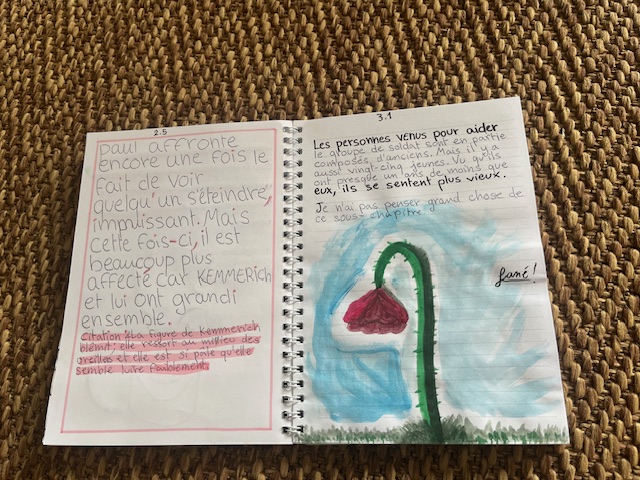 2.5
Paul affronte
encore une fois le
fait de voir
quelqu'un s'éteindre,
impuissant. Mais
cette fois-ci, il est
beaucoup plus
affecté car KEMMERICH
et lui ont grandi
ensemble.
Citation: "La figure de Kemmerich
blêmit; elle ressort au milieu des
oreillers et elle est si pâle qu'elle
semble luire faiblement.
3.1
Les personnes venus pour aider
le groupe de soldat sont en partie
composés d'anciens. Mais il y a
aussi vingt-cinq jeunes. Vu qu'ils
ont presque un ans de moins que
eux, ils se sentent plus vieux.
Je n'ai pas penser grand chose de
ce sous-chapitre.
fané!